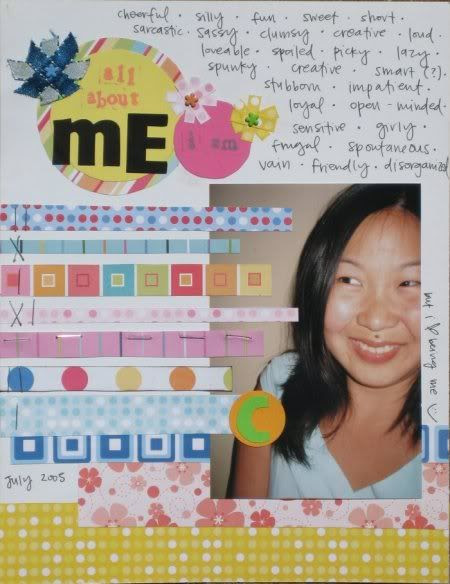 cheerful · silly · fun · sweet · short ·
sarcastic · sassy · clumsy · creative · loud ·
loveable · spoiled · picky · lazy ·
spunky · creative · smart (?) ·
stubborn · impatient ·
loyal · open-minded ·
sensitive · girly ·
frugal · spontaneous ·
vain · friendly · disorganized
all
about
mE
i am
but i ♡ being me
C
july 2005